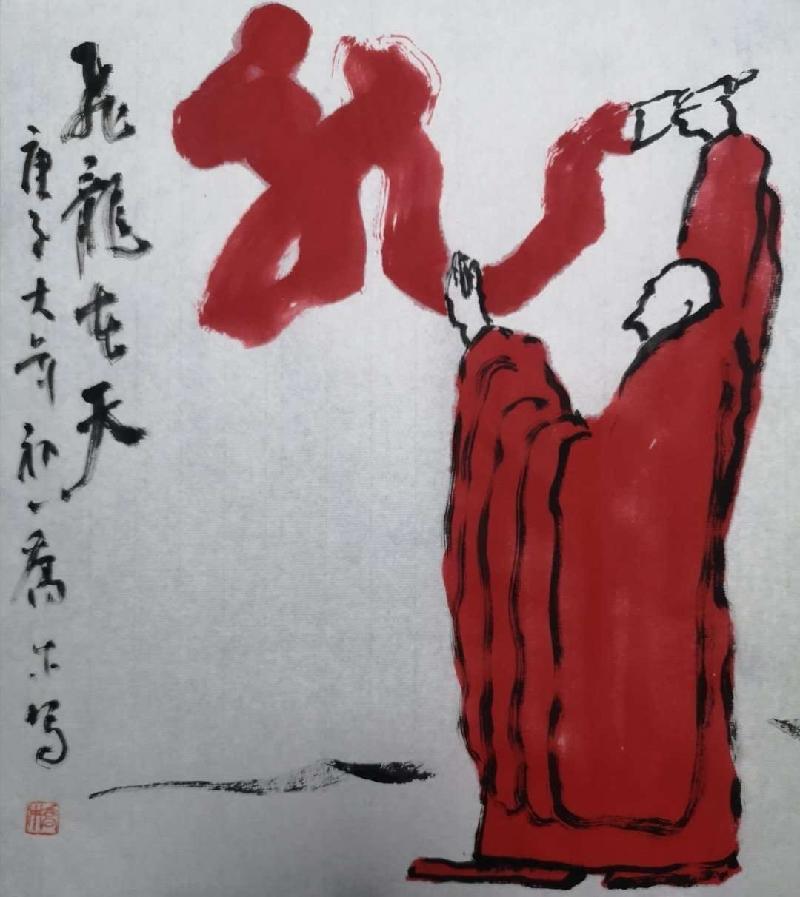 飛龍在天
庚子大年初八喬木写